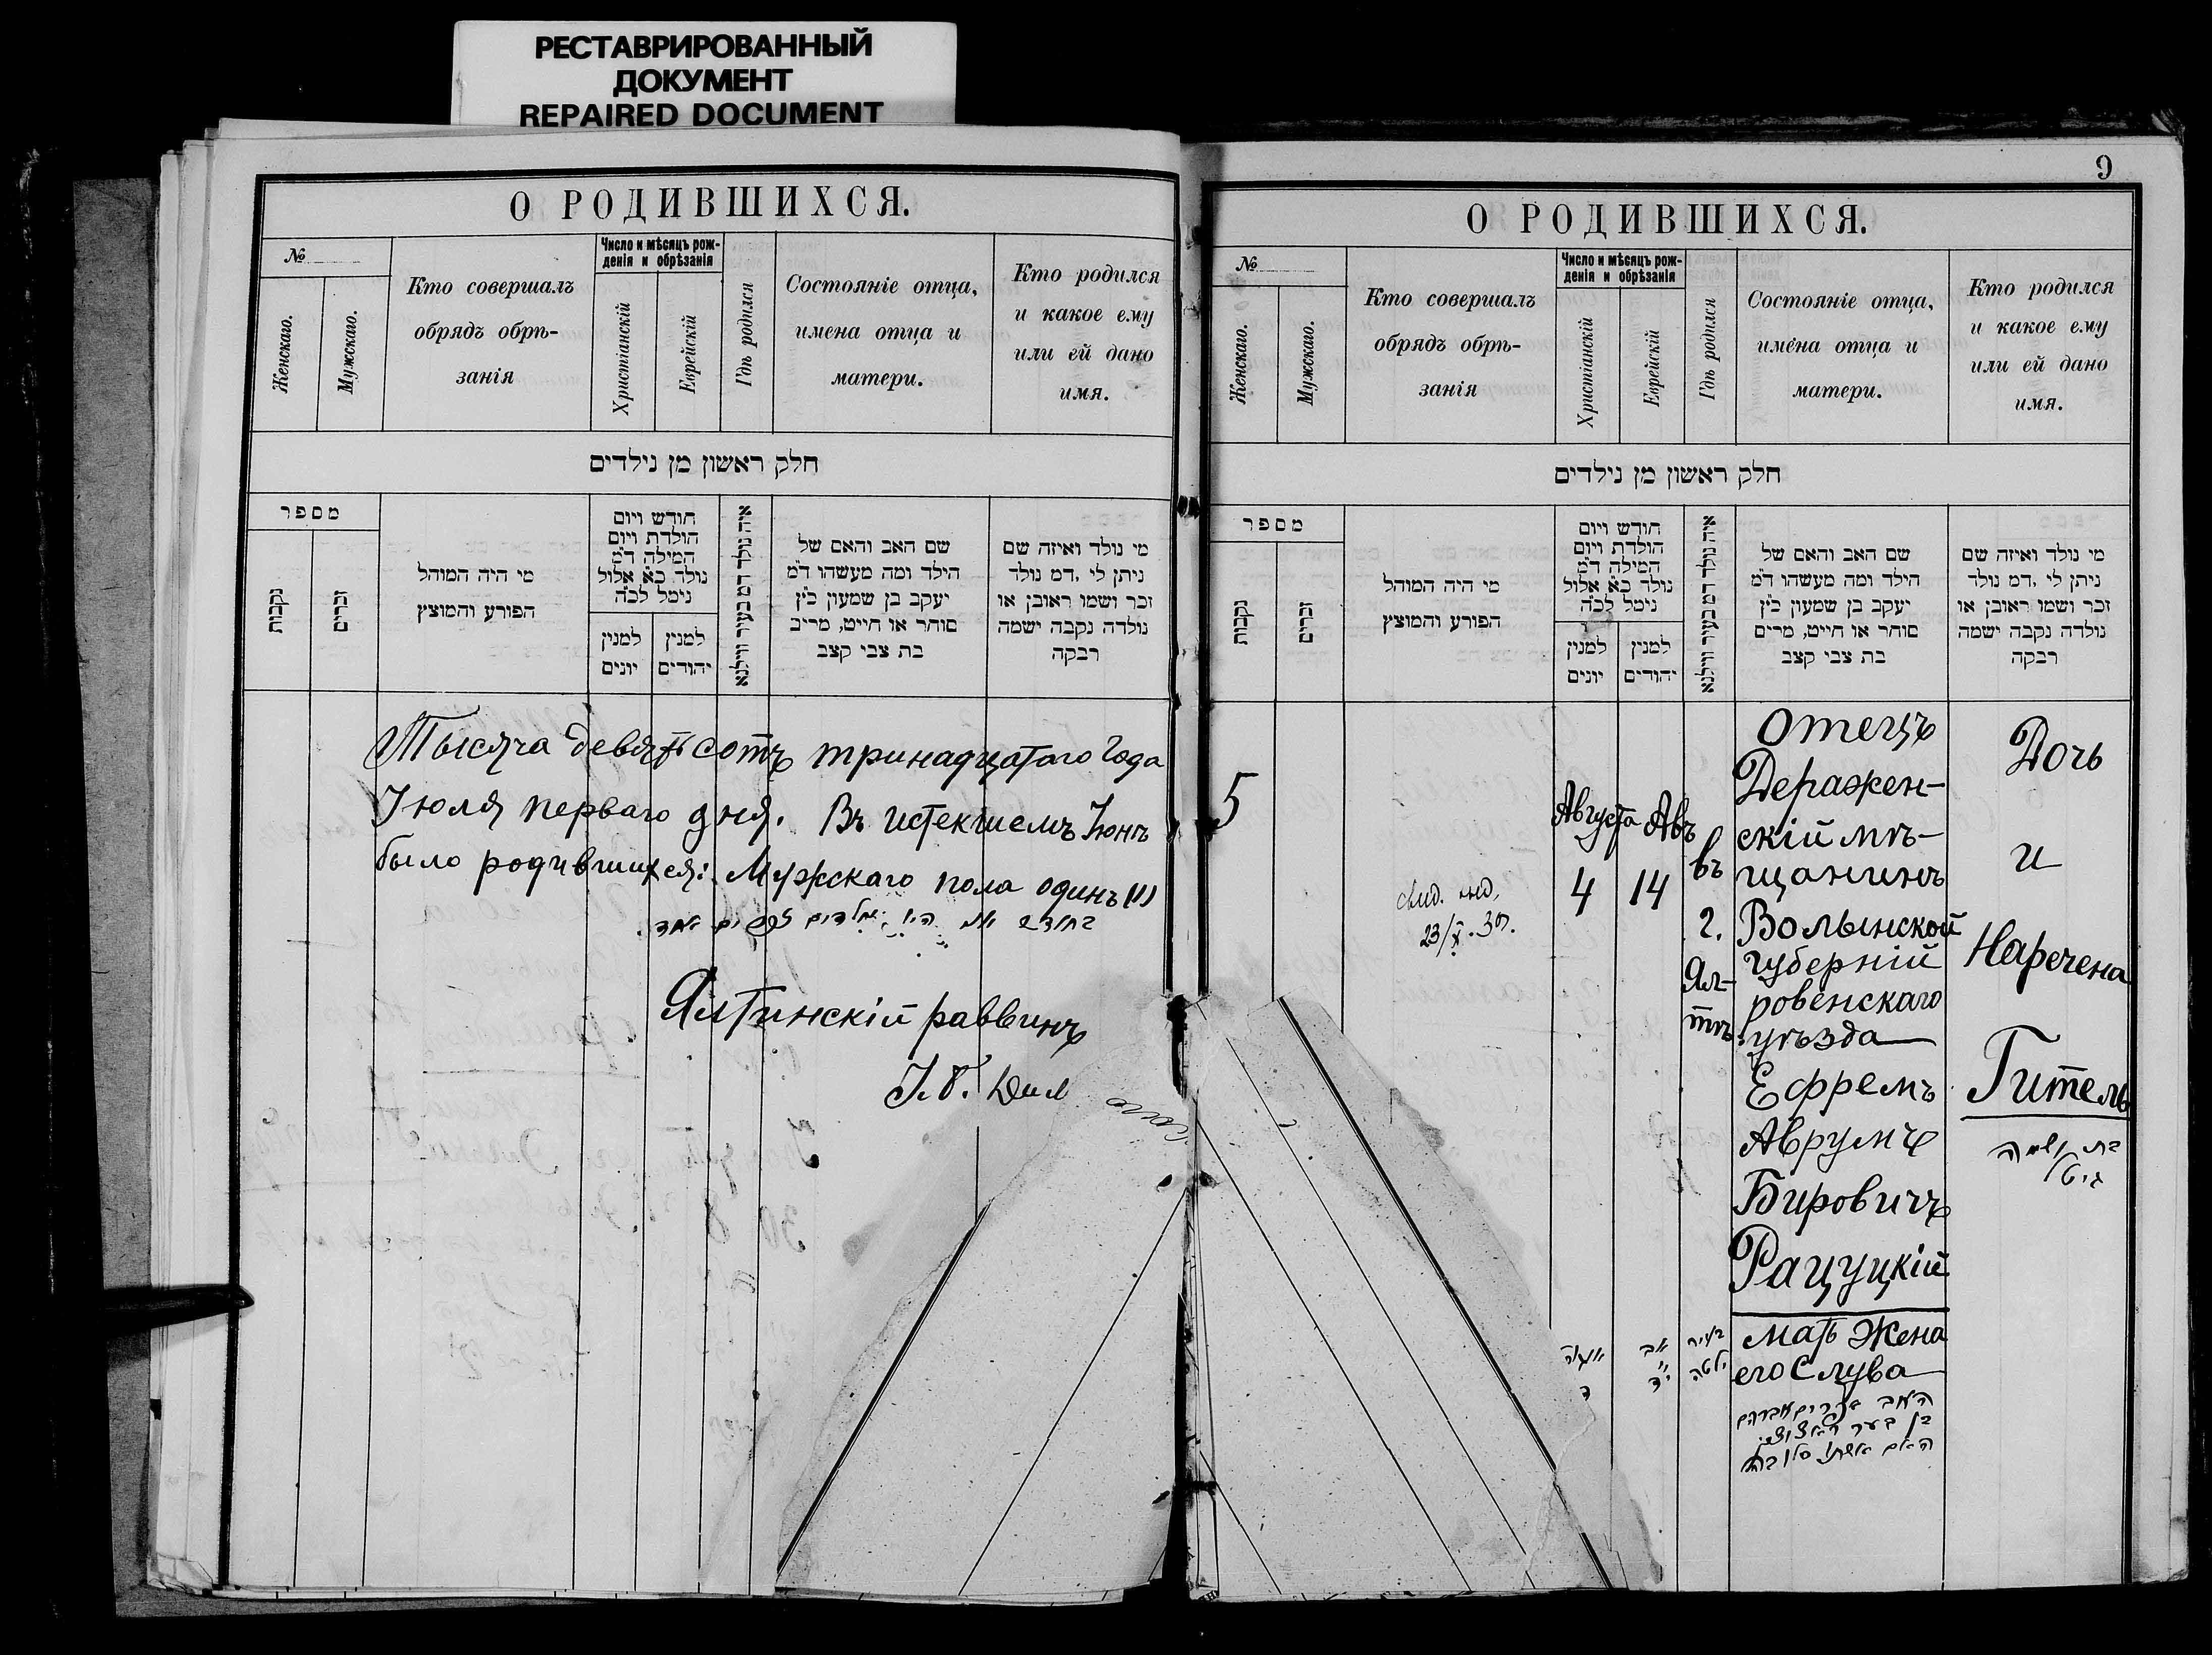 РЕСТАВРИРОВАННЫЙ
ДОКУМЕНТ
REPAIRED DOCUMENT
О РОДИВШИХСЯ.
№
Женскаго.
Мужскаго.
Кто совершалъ
обрядъ обрѣ-
занія
Число и мѣсяцъ рож-
денія и обрѣзанія
Христіанскій
Еврейскій
Гдѣ родился
Состояніе отца,
имена отца и
матери.
Кто родился
и какое ему
или ей дано
имя.
חלק ראשון מן נילדים
מספר
נקבות
זכרים
מי היה המוהל
הפורע והמוצץ
חודש ויום
הולדת ויום
המילה ד״מ
נולד כ״א אלול
נימל לכ״ה
למנין
יונים
למנין
יהודים
איה נולד דמ בעיר ווילנא
שם האב והאם של
הילד ומה מעשהו ד״מ
יעקב בן שמעון כ״ץ
סוחר או חייט, מרים
בת צבי קצב
מי נולד ואיזה שם
ניתן לי, דמ נולד
זכר ושמו ראובן או
נולדה נקבה ישמה
רבקה
Тысяча девятьсотъ тринадцатаго года
Іюля перваго дня. Въ истекшемъ Іюнѣ
было родившихся: Мужскаго пола одинъ (1)
Ялтинскій раввинъ
9
О РОДИВШИХСЯ.
№
Женскаго.
Мужскаго.
Кто совершалъ
обрядъ обрѣ-
занія
Число и мѣсяцъ рож-
денія и обрѣзанія
Христіанскій
Еврейскій
Гдѣ родился
Состояніе отца,
имена отца и
матери.
Кто родился
и какое ему
или ей дано
имя.
חלק ראשון מן נילדים
מספר
נקבות
זכרים
מי היה המוהל
הפורע והמוצץ
חודש ויום
הולדת ויום
המילה ד״מ
נולד כ״א אלול
נימל לכ״ה
למנין
יונים
למנין
יהודים
איה נולד דמ בעיר ווילנא
שם האב והאם של
הילד ומה מעשהו ד״מ
יעקב בן שמעון כ״ץ
סוחר או חייט, מרים
בת צבי קצב
מי נולד ואיזה שם
ניתן לי, דמ נולד
זכר ושמו ראובן או
נולדה נקבה ישמה
רבקה
5
23/X.30.
Августа
4
Авъ
14
въ
г.
Ял-
тѣ
отецъ
Деражен-
скій мѣ-
щанинъ
Волынской
губерній
ровенскаго
уѣзда
Ефремъ
Аврумъ
Бировичъ
Рацуцкій
мать жена
его Слува
Дочь
и
Наречена
Гитель
בת ושמה
גיטל
אב
י״ד
בעיר
ילטה
האב אפרים אברהם
האם אשתו סלובה